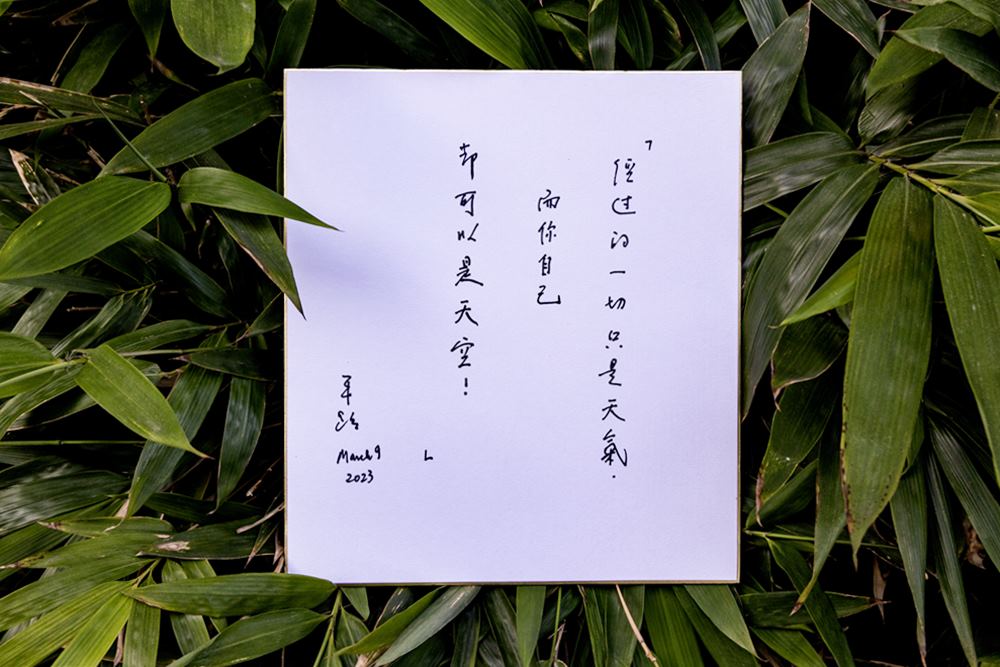 「經过的一切只是天氣.
而你自己
却可以是天空!
」
平路
March 9
2023